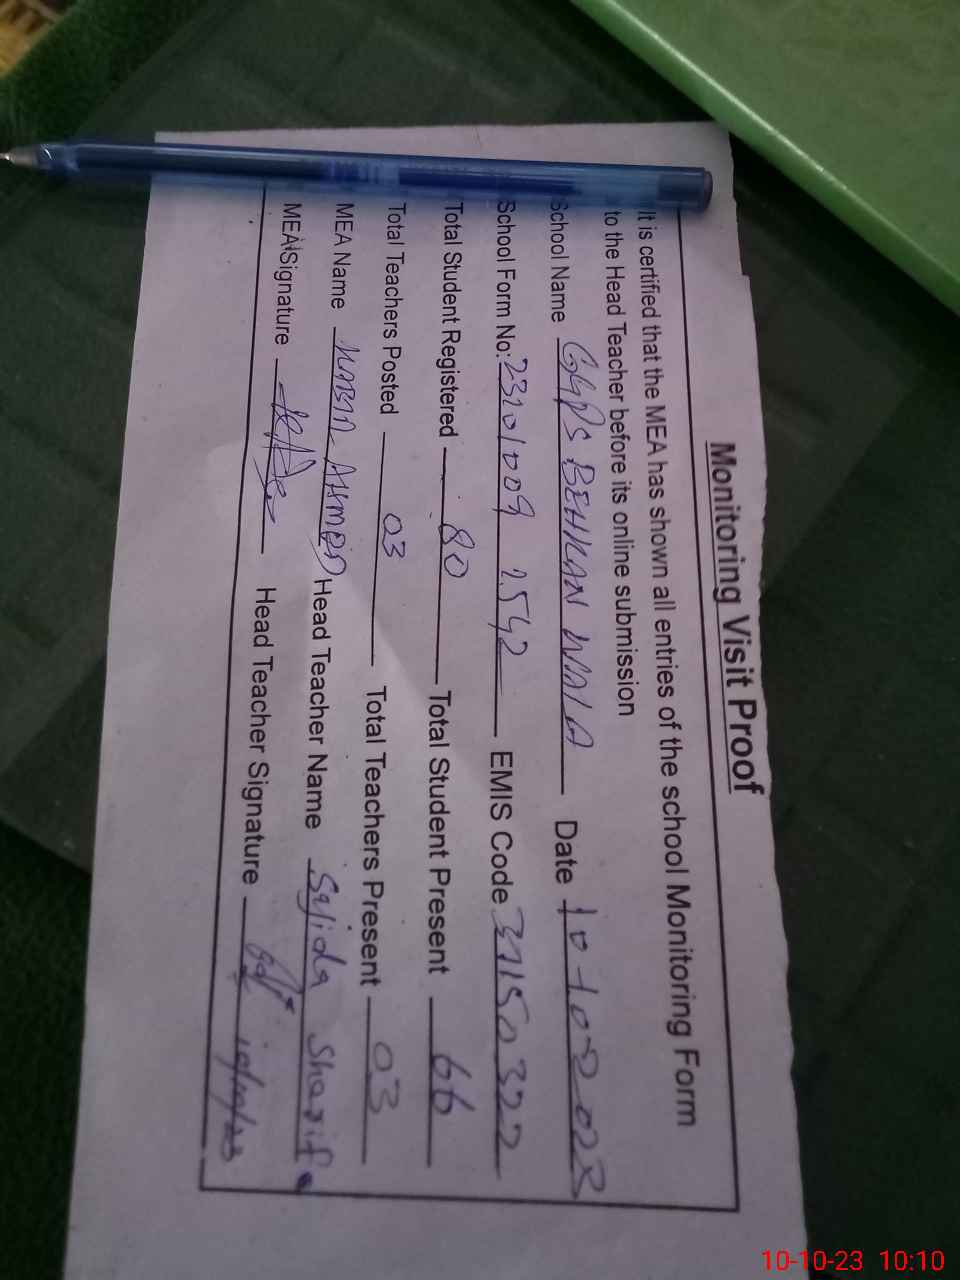 Monitoring Visit Proof
It is certified that the MEA has shown all entries of the school Monitoring Form
to the Head Teacher before its online submission
School Name GGPS BEHKAN WALA Date 10-10-2023
School Form No: 23101009 2542 EMIS Code 37150322
Total Student Registered 80 Total Student Present 66
Total Teachers Posted 03 Total Teachers Present 03
MEA Name AHMED Head Teacher Name Sajida Sharif
MEA Signature Head Teacher Signature
10-10-23 10:10